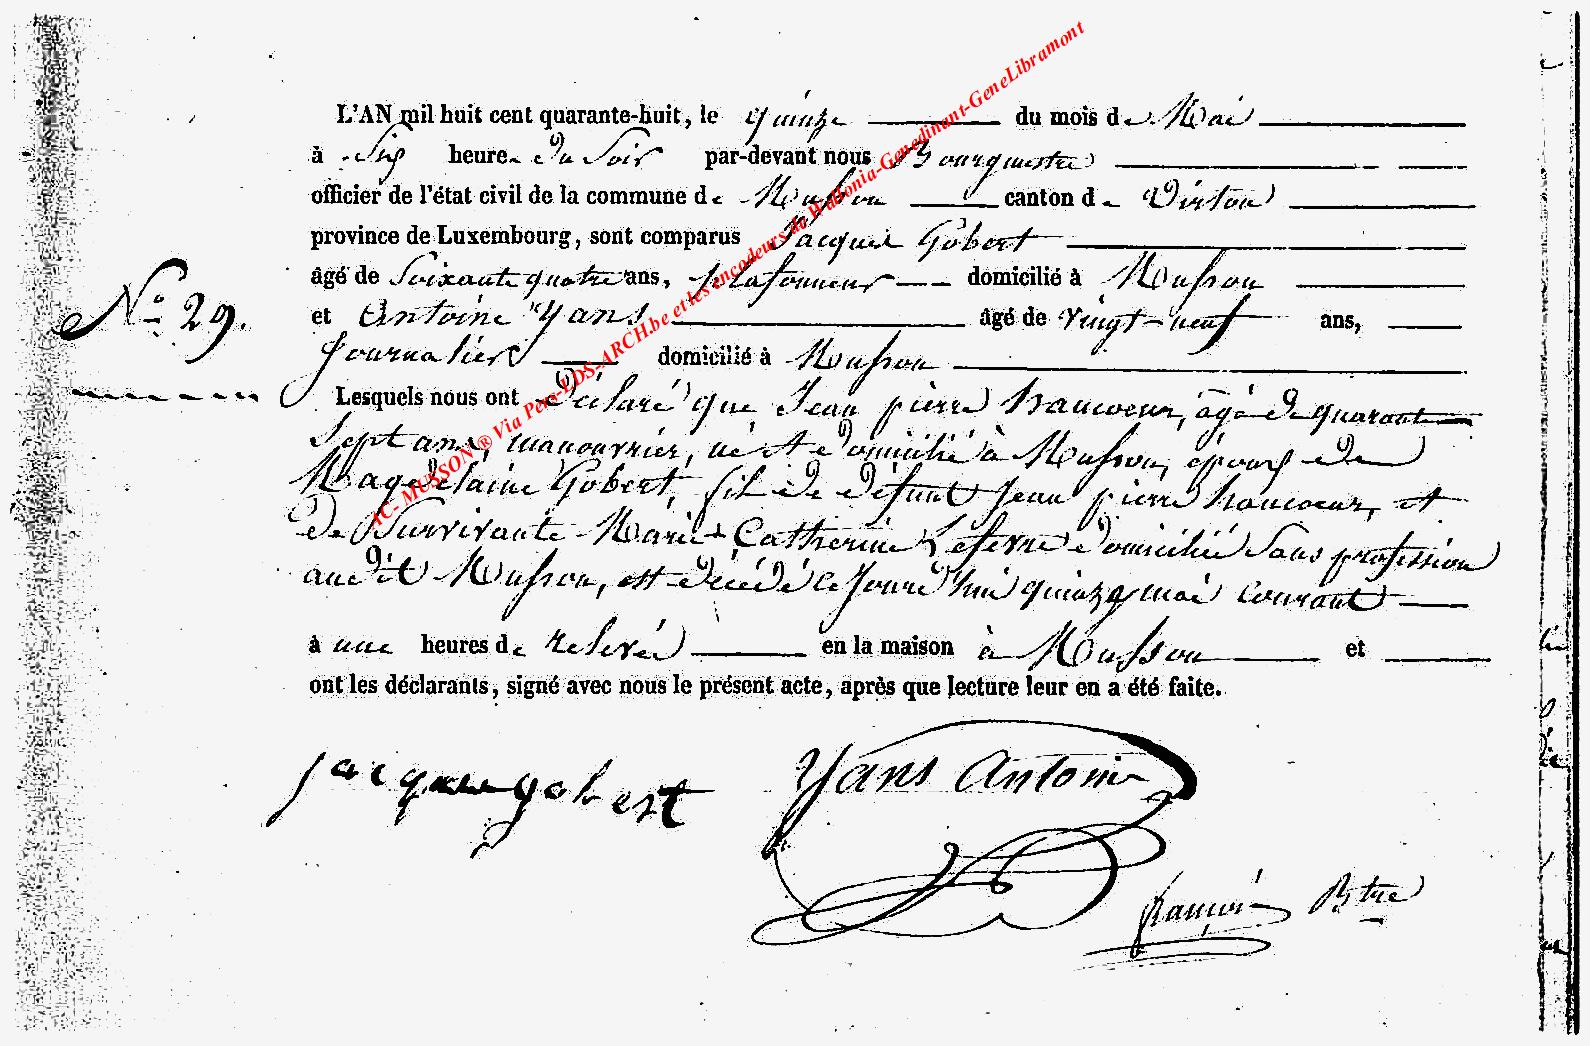 L'AN mil huit cent quarante-huit, le quinze du mois de Mai
à six heure du soir par-devant nous Bourguestre
officier de l'état civil de la commune de Musson canton de Virton
province de Luxembourg, sont comparus Jacque Gobert
âgé de soixante quatre ans, plafonneur domicilié à Musson
et Antoine Yans âgé de vingt-neuf ans,
No 29.
journalier domicilié à Musson
Lesquels nous ont déclaré que Jean pierre haucoeur, âgé de quarante
sept ans, manouvrier, né et domicilié à Musson, époux de
Magdelaine Gobert, fils de défunt Jean pierre haucoeur, et
de survivante Marie Catherine Lefevre domicilié sans profession
audit Musson, est décédé ce jourd'hui quinze mai courant
à une heures de relevé en la maison à Musson et
ont les déclarants, signé avec nous le présent acte, après que lecture leur en a été faite.
jacque gobert Yans Antoine
françois Btre
IC- MUSSON ® Via Pers-LDS-ARCH.be et les encodeurs de Wallonia-Genedinant-GeneLibramont